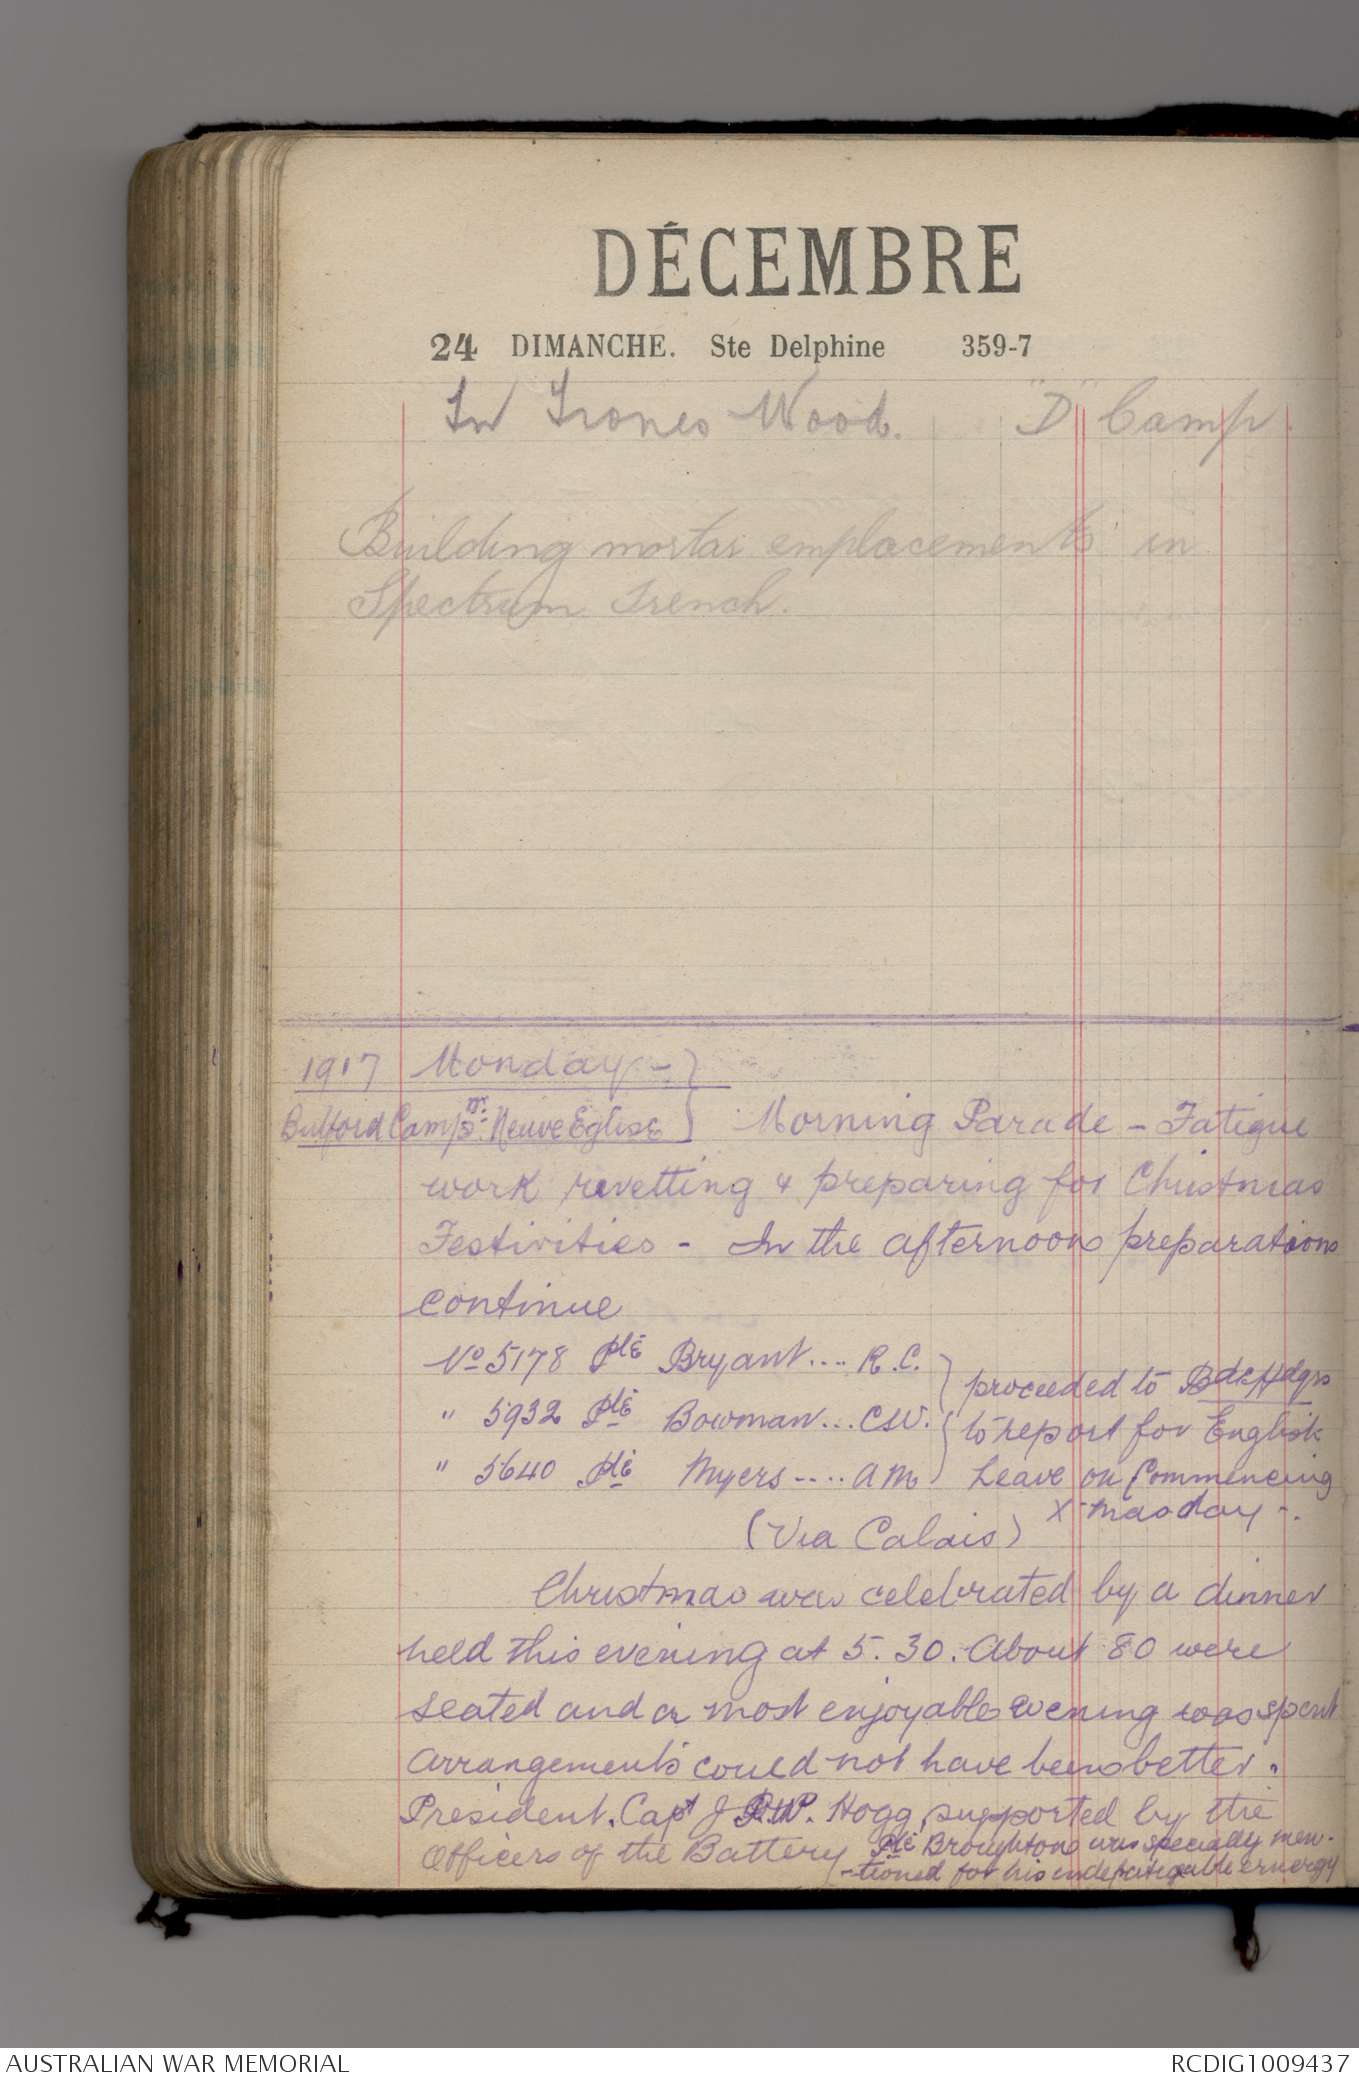 DÉCEMBRE
24 DIMANCHE. Ste Delphine 359-7
In Trones Wood. "D" Camp
Building mortar emplacements in
Spectrum Trench.
1917 Monday -
Bulford Camp nr. Neuve Eglise } Morning Parade - Fatigue
work revetting & preparing for Christmas
Festivities - In the afternoon preparations
continue
No 5178 Pte Bryant .... R.C. } proceeded to Bde Hdqrs
" 5932 Pte Bowman ... C.W. } to report for English
" 5640 Pte Myers .... A M } Leave on Commencing
X-mas day -.
(Via Calais)
Christmas was celebrated by a dinner
held this evening at 5.30. About 80 were
seated and a most enjoyable evening was spent
Arrangements could not have been better.
President. Capt J R.W. Hogg, supported by the
Officers of the Battery Pte Broughton was specially men-
-tioned for his indefatigable energy
AUSTRALIAN WAR MEMORIAL
RCDIG1009437